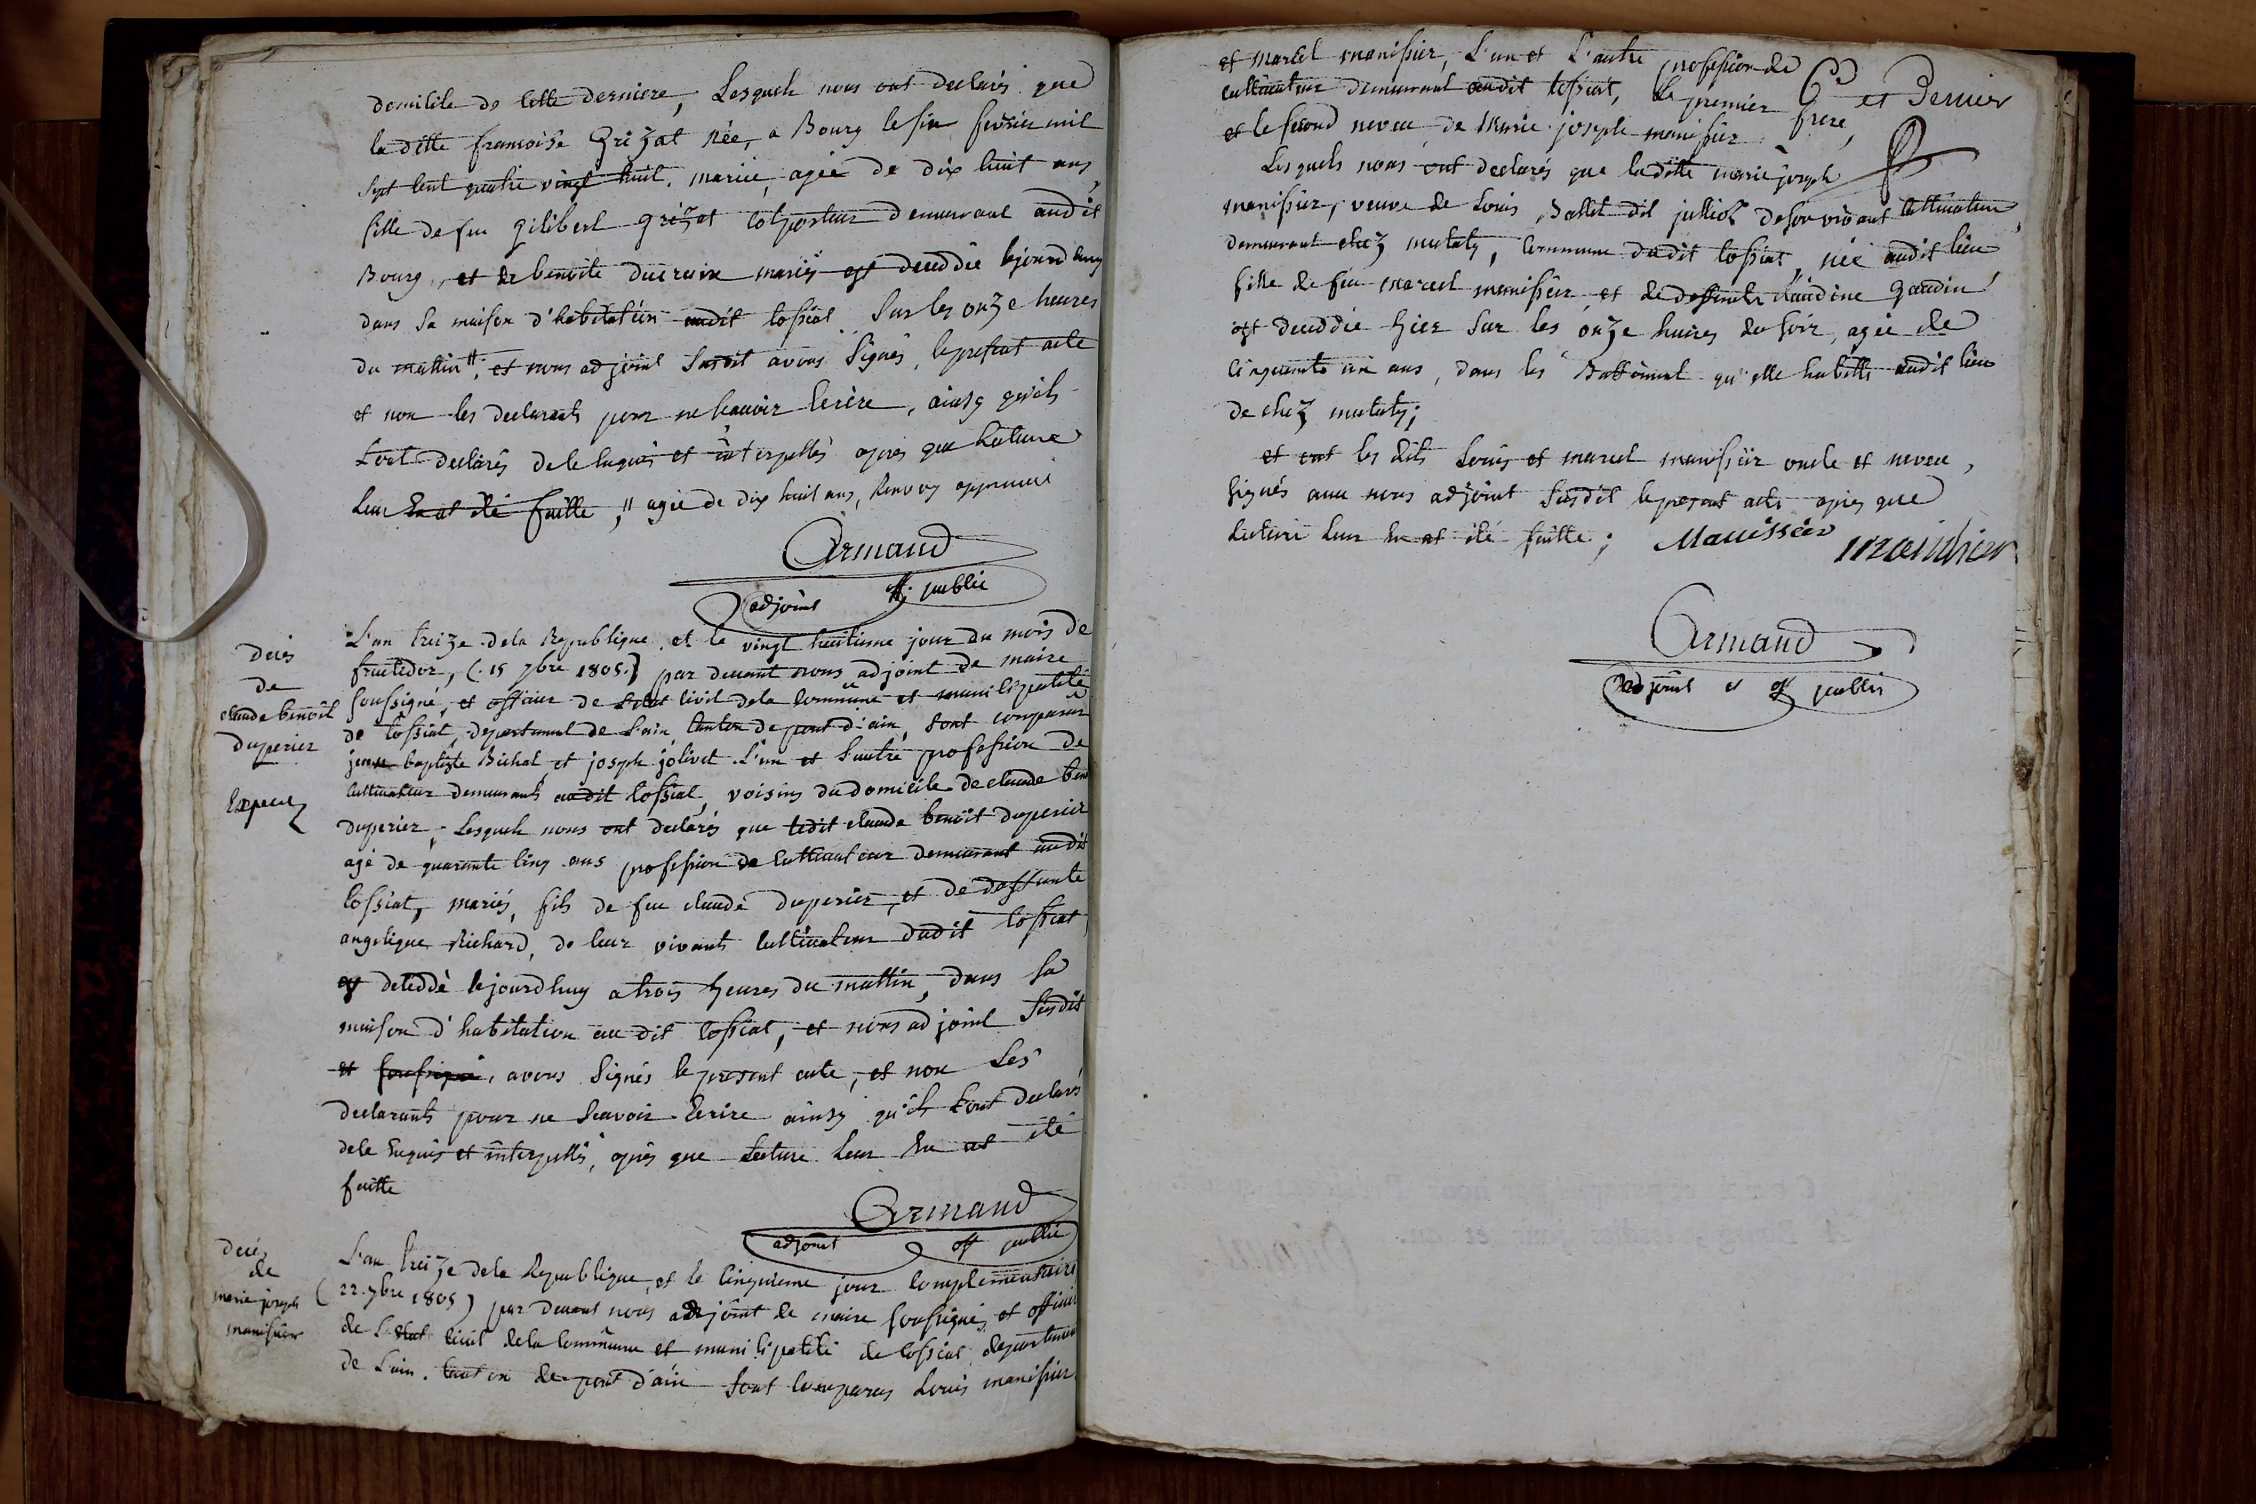 domicile de cette derniere, Lesquels nous ont declarés que
la ditte francoise Grizat née, a Bourg le six fevrier mil
sept cent quatre vingt huit, mariée, agée de dix huit ans,
fille de feu gilibert grizat colporteur demeurant audit
Bourg, et de benoite ducruix mariés est deceddée cejourdhuy
dans sa maison d'habitation audit tossiat sur les onze heures
du mattin "; et nous adjoint susdit avons signés, le present acte
et non les declarants pour ne scavoir lecrire, ainsy qu'ils
l'ont declarés de le requis et interpellés apres que lecture
leur En at été faitte, " agée de dix huit ans, Renvoy approuvé
Armand
adjoint off. public
L'an treize dela Republique, et le vingt huitieme jour du mois de
fructidor, (15 7bre 1805) par devant nous adjoint de maire
soussigné, et officier de l'etat civil dela commune et municipalité
de tossiat, departement de l'ain, canton de pont d'ain, sont comparus
jean baptiste Bichat et joseph jolivet L'un et l'autre profession de
cultivateur demeurants audit tossiat, voisins du domicile de claude ben
duperier, Lesquels nous ont declarés que ledit claude benoit duperier
agé de quarante cinq ans profession de cultivateur demeurant audit
tossiat, mariés, fils de feu claude duperier, et de deffunte
angelique Richard, de leur vivants cultivateur dudit tossiat
est deceddé cejourdhuy a trois heures du mattin, dans sa
maison d'habitation au dit tossiat, et nous adjoint susdit
et soussigné, avons signés le present acte, et non Les
declarants pour ne scavoir Ecrire ainsy qu'ils l'ont declarés
dele Requis et interpellés, apres que Lecture leur En at été
faitte
Armand
adjoint off public
L'an treize dela Republique, et le cinquieme jour complementaire
(22 7bre 1805) par devant nous adjoint de maire soussignés et officier
de L'etat civil dela commune et municipalité de tossiat, departement
de l'ain, canton de pont d'ain sont comparus Louis manissier
deces
de
claude benoit
duperier
deces
de
marie joseph
manissier
et marcel manissier, L'un et L'autre profession de
cultivateur demeurant audit tossiat, le premier frere,
et le second neveu de Marie joseph manissier
Ce et Dernier
Lesquels nous ont declarés que laditte marie joseph
manissier, veuve de Louis Ballet dit julliot de son vivant cultivateur,
demeurant chez mutaty, commune dudit tossiat, née audit lieu
fille de feu marcel manissier et de deffunte claudine Gaudin
est deceddée hier sur les onze heures du soir, agée de
cinquante un ans, dans les Battiment qu'elle habitte audit lieu
de chez mutaty;
et ont les dits Louis et marcel manissier oncle et neveu,
signés avec nous adjoint susdit le present acte apres que
Lecture leur En at été faitte; Manissier manissier
Armand
adjoint et off public